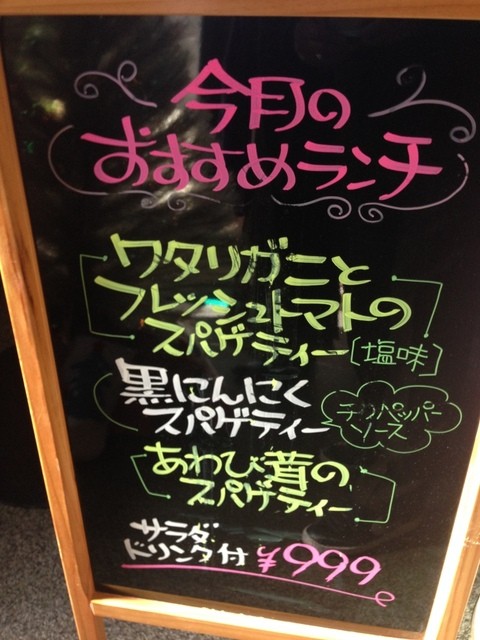 今月の
おすすめランチ
ワタリガニと
フレッシュトマトの
スパゲティー[塩味]
黒にんにく
スパゲティー
チリペッパー
ソース
あわび茸の
スパゲティー
サラダ
ドリンク付 ¥999